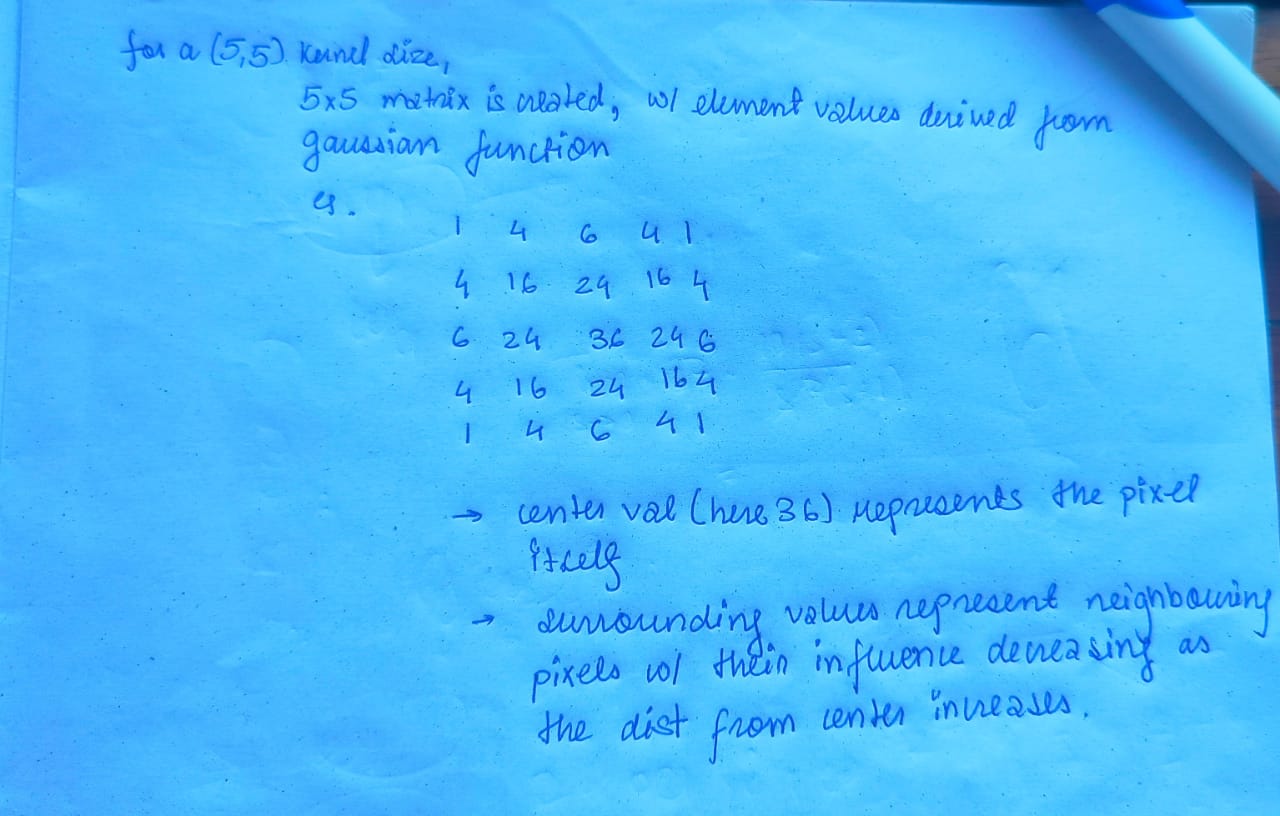 for a (5,5) kernel size,
5x5 matrix is created, w/ element values derived from
gaussian function
eg.
1 4 6 4 1
4 16 24 16 4
6 24 36 24 6
4 16 24 16 4
1 4 6 4 1
→ center val (here 36) represents the pixel
itself
→ surrounding values represent neighbouring
pixels w/ their influence decreasing as
the dist from center increases.